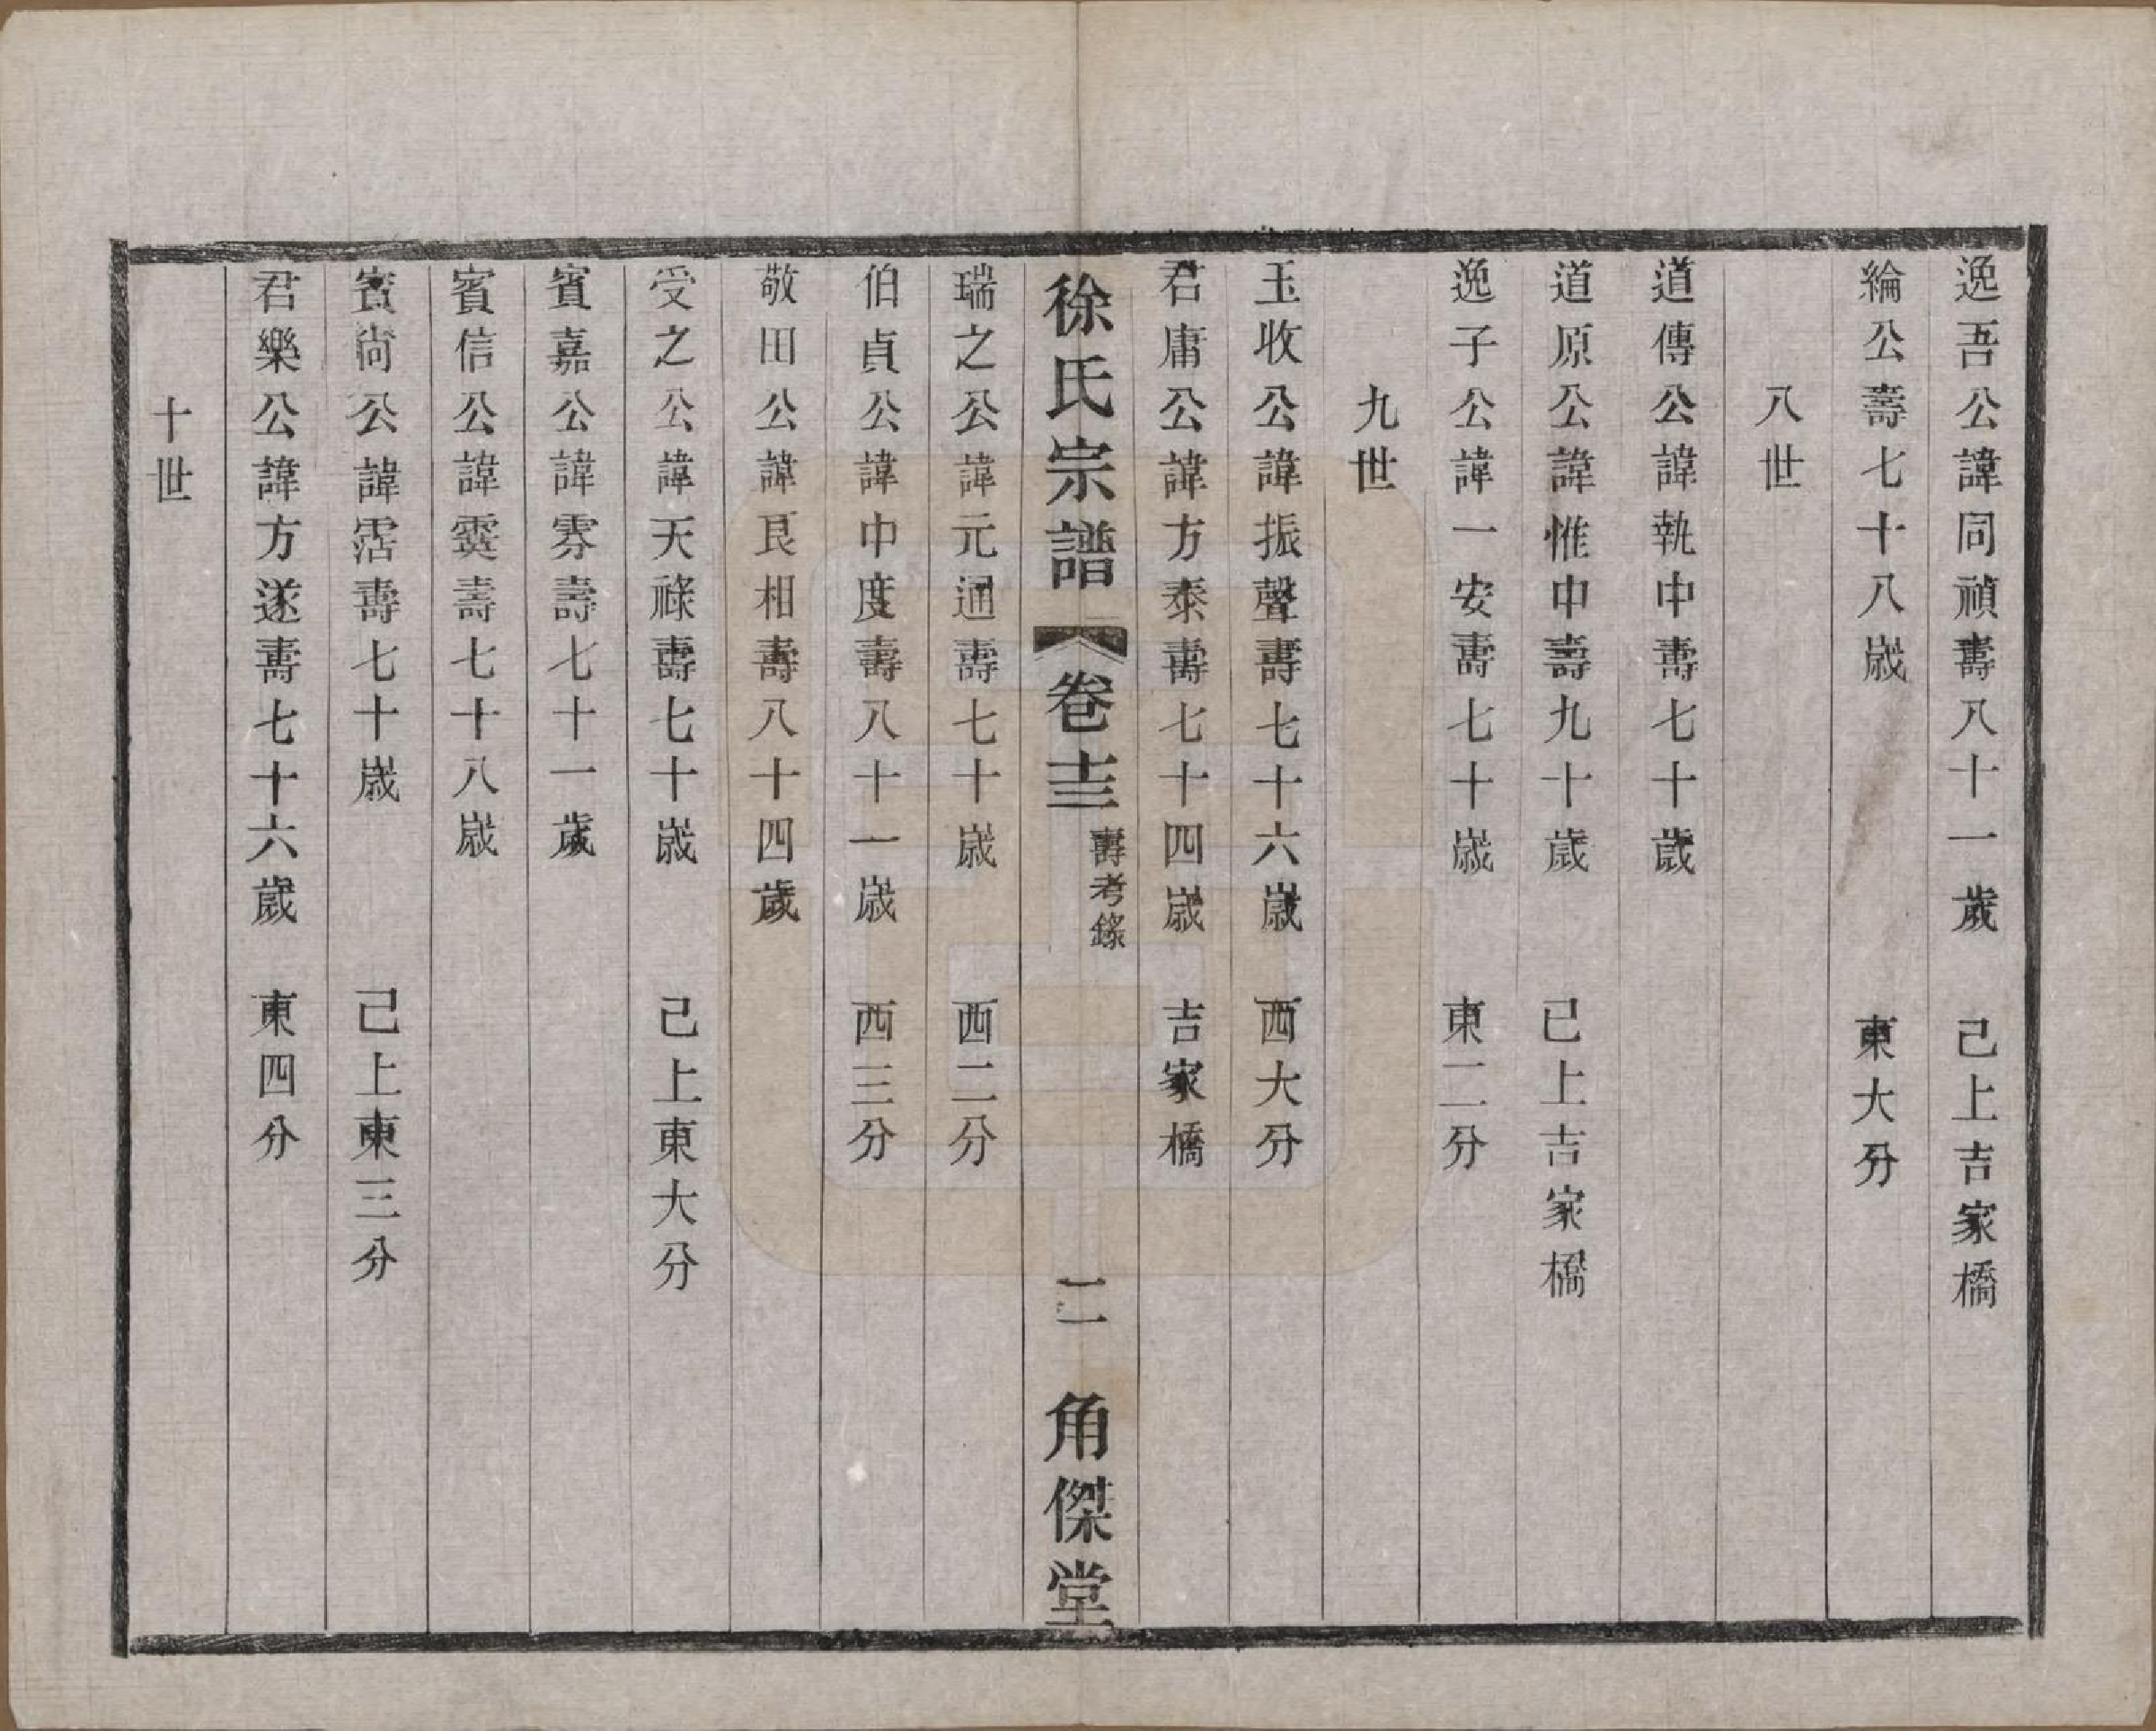 逸吾公諱同禎壽八十一歲　己上吉家橋
綸公壽七十八歲　東大分
八世
道傳公諱執中壽七十歲
道原公諱惟中壽九十歲　己上吉家橋
逸子公諱一安壽七十歲　東二分
九世
玉收公諱振聲壽七十六歲　西大分
君庸公諱方泰壽七十四歲　吉家橋
徐氏宗譜　卷十三　壽考錄　二　角傑堂
瑞之公諱元通壽七十歲　西二分
伯貞公諱中度壽八十一歲　西三分
敬田公諱艮相壽八十四歲
受之公諱天祿壽七十歲　己上東大分
賓嘉公諱雰壽七十一歲
賓信公諱霙壽七十八歲
賓尙公諱霑壽七十歲　己上東三分
君樂公諱方遂壽七十六歲　東四分
十世